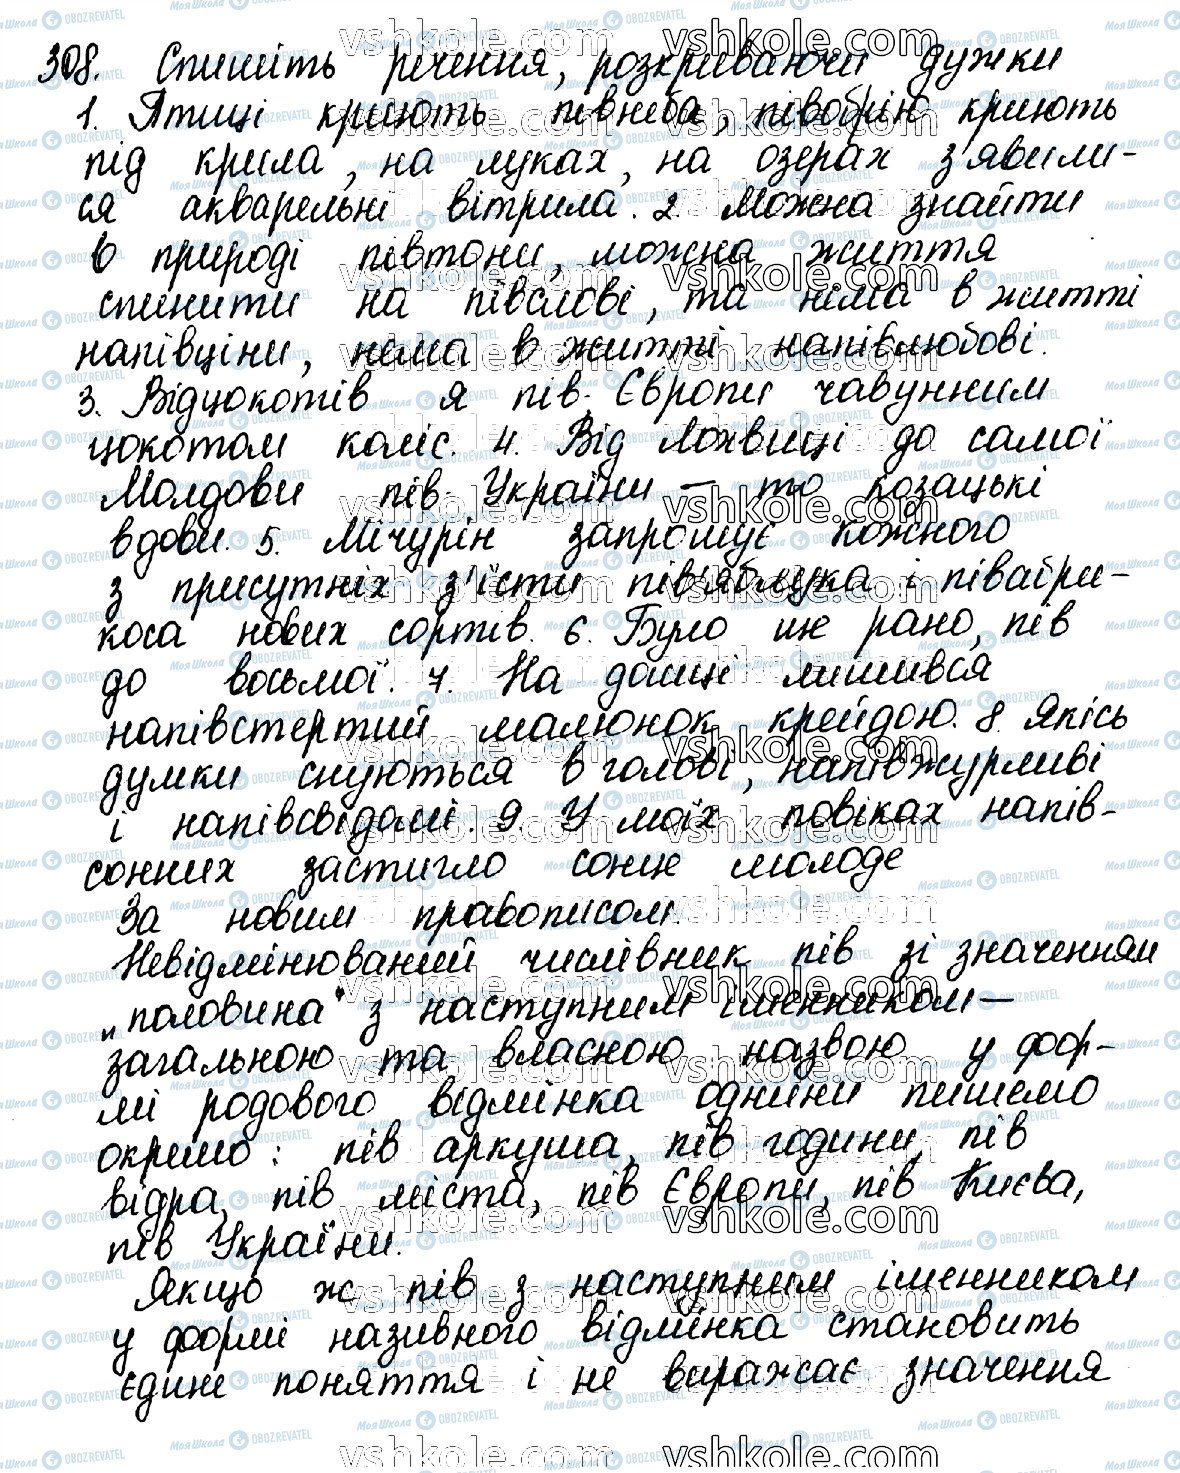 308. Спишіть речення, розкриваючи дужки
1. Птиці криють півнеба, півобрію криють
під крила, на луках, на озерах з'явили-
ся акварельні вітрила. 2. Можна знайти
в природі півтони, можна життя
спинити на півслові, та нема в житті
напівціни, нема в житті напівлюбові.
3. Відцокотів я пів- Європи чавунним
цокотом коліс. 4. Від Лохвиці до самої
Молдови пів- України — то козацькі
вдови. 5. Мічурін запрошує кожного
з присутніх з'їсти пів'яблука і півабри-
коса нових сортів. 6. Було ще рано, пів
до восьмої. 7. На дошці лишився
напівстертий малюнок крейдою. 8. Якісь
думки снуються в голові, напівжурливі
і напівсвідомі. 9. У моїх повіках напів-
сонних застигло сонце молоде
За новим правописом.
Невідмінюваний числівник пів зі значенням
„половина" з наступним іменником —
загальною та власною назвою у фор-
мі родового відмінка однини пишемо
окремо: пів аркуша, пів години, пів
відра, пів міста, пів Європи, пів Києва,
пів України.
Якщо ж пів з наступним іменником
у формі називного відмінка становить
єдине поняття і не виражає значення